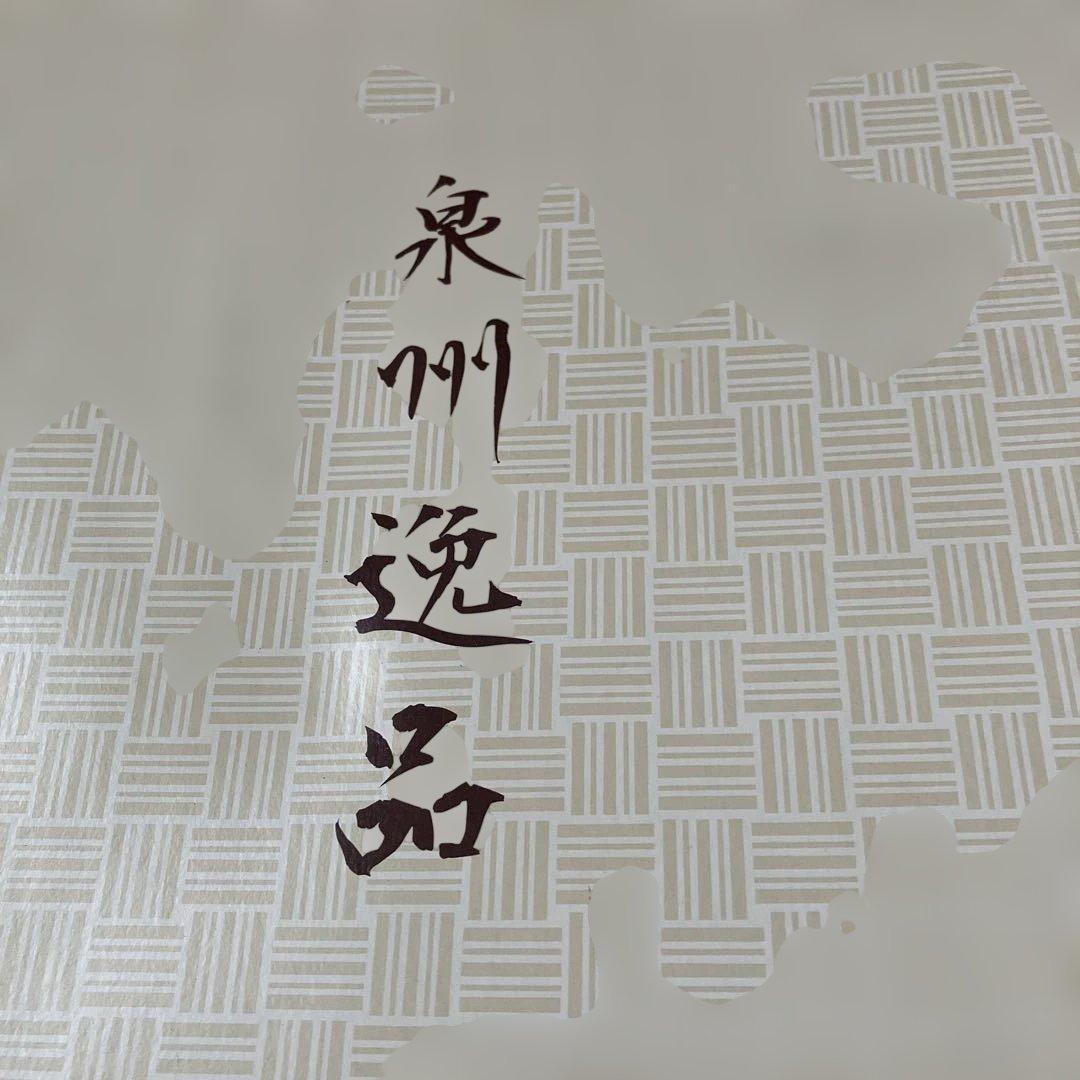 泉州逸品